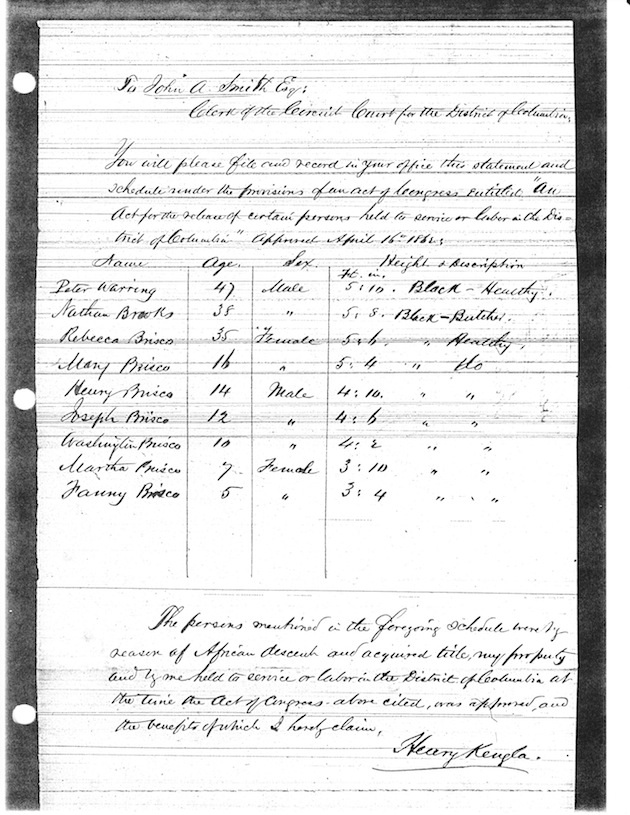 To John A. Smith Esq:
Clerk of the Circuit Court for the District of Columbia,
You will please file and record in your office this statement and
schedule under the provisions of an act of Congress entitled "An
Act for the release of certain persons held to service or labor in the Dis-
trict of Columbia" Approved April 16th 1862;
Name Age. Sex. Height & Description
Ft. in.
Peter Warring 47 Male 5: 10. Black - Healthy.
Nathan Brooks 38 " 5: 8. Black - Butcher.
Rebecca Brisco 35 Female 5: 6 " Healthy,
Mary Brisco 16 " 5: 4 " Do
Henry Brisco 14 Male 4: 10. " "
Joseph Brisco 12 " 4: 6 " "
Washington Brisco 10 " 4: 2 " "
Martha Brisco 7 Female 3: 10 " "
Fanny Brisco 5 " 3: 4 " "
The persons mentioned in the foregoing schedule were by
reason of African descent and acquired title, my property
and by me held to service or labor in the District of Columbia at
the time the Act of Congress above cited, was approved, and
the benefits of which I hereby claim,
Henry Kengla.